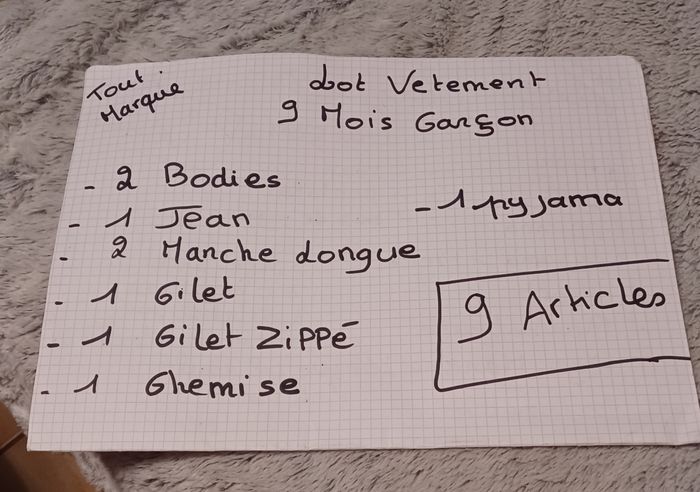 Tout
Marque
Lot Vetement
9 Mois Garçon
- 2 Bodies
- 1 Jean
- 2 Manche Longue
- 1 Gilet
- 1 Gilet Zippé
- 1 Chemise
- 1 pyjama
9 Articles